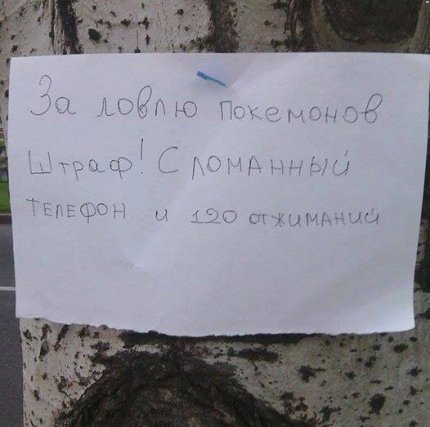 За ловлю покемонов
штраф! Сломанный
телефон и 120 отжиманий